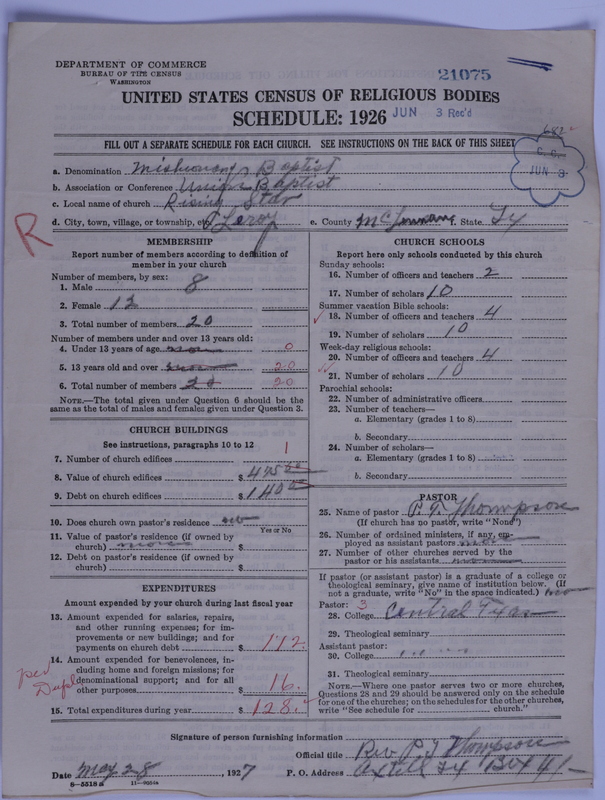 DEPARTMENT OF COMMERCE
BUREAU OF THE CENSUS
WASHINGTON
21075
UNITED STATES CENSUS OF RELIGIOUS BODIES
SCHEDULE: 1926 JUN 3 Rec'd
FILL OUT A SEPARATE SCHEDULE FOR EACH CHURCH. SEE INSTRUCTIONS ON THE BACK OF THIS SHEET
JUN 3
a. Denomination Missionary Baptist
b. Association or Conference Union Baptist
c. Local name of church Rising Star
d. City, town, village, or township, etc. Leroy e. County McLennan f. State Tx
R
MEMBERSHIP
Report number of members according to definition of
member in your church
Number of members, by sex:
1. Male 8
2. Female 12
3. Total number of members 20
Number of members under and over 13 years old:
4. Under 13 years of age 0
5. 13 years old and over 20
6. Total number of members 20 20
NOTE.—The total given under Question 6 should be
same as the total of males and females given under Question 3.
CHURCH BUILDINGS
See instructions, paragraphs 10 to 12
7. Number of church edifices 1
8. Value of church edifices $ 475 00
9. Debt on church edifices $ 140 00
10. Does church own pastor's residence no
Yes or No
11. Value of pastor's residence (if owned by
church) none $
12. Debt on pastor's residence (if owned by
church) $
EXPENDITURES
Amount expended by your church during last fiscal year
13. Amount expended for salaries, repairs,
and other running expenses; for im-
provements or new buildings; and for
payments on church debt $ 112.
14. Amount expended for benevolences, in-
cluding home and foreign missions; for
denominational support; and for all
other purposes $ 16.
per Dupl
15. Total expenditures during year $ 128.
CHURCH SCHOOLS
Report here only schools conducted by this church
Sunday schools:
16. Number of officers and teachers 2
17. Number of scholars 10
Summer vacation Bible schools:
18. Number of officers and teachers 4
19. Number of scholars 10
Week-day religious schools:
20. Number of officers and teachers 4
21. Number of scholars 10
Parochial schools:
22. Number of administrative officers
23. Number of teachers—
a. Elementary (grades 1 to 8)
b. Secondary
24. Number of scholars—
a. Elementary (grades 1 to 8)
b. Secondary
PASTOR
25. Name of pastor P. T. Thompson
(If church has no pastor, write "None")
26. Number of ordained ministers, if any, em-
ployed as assistant pastors none
27. Number of other churches served by the
pastor or his assistants
If pastor (or assistant pastor) is a graduate of a college or
theological seminary, give name of institution below. (If
not a graduate, write "No" in the space indicated.) no
Pastor: 3
28. College Central Texas
29. Theological seminary
Assistant pastor:
30. College
31. Theological seminary
NOTE.—Where one pastor serves two or more churches,
Questions 28 and 29 should be answered only on the schedule
for one of the churches; on the schedules for the other churches,
write "See schedule for church."
Signature of person furnishing information
Official title Rev P. T Thompson
Date May 28, 1927 P. O. Address Axtell Tx Box 41
8-5518a 11-9554a